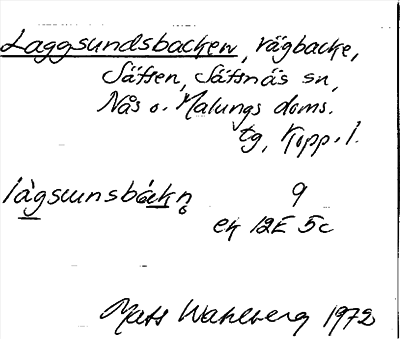 Laggsundsbacken, vägbacke,
Säfsen, Säfsnäs sn,
Nås o. Malungs doms.
tg, Kopp. l.
làgsunsbákn̥ 9
ek 12E 5c
Mats Wahlberg 1972